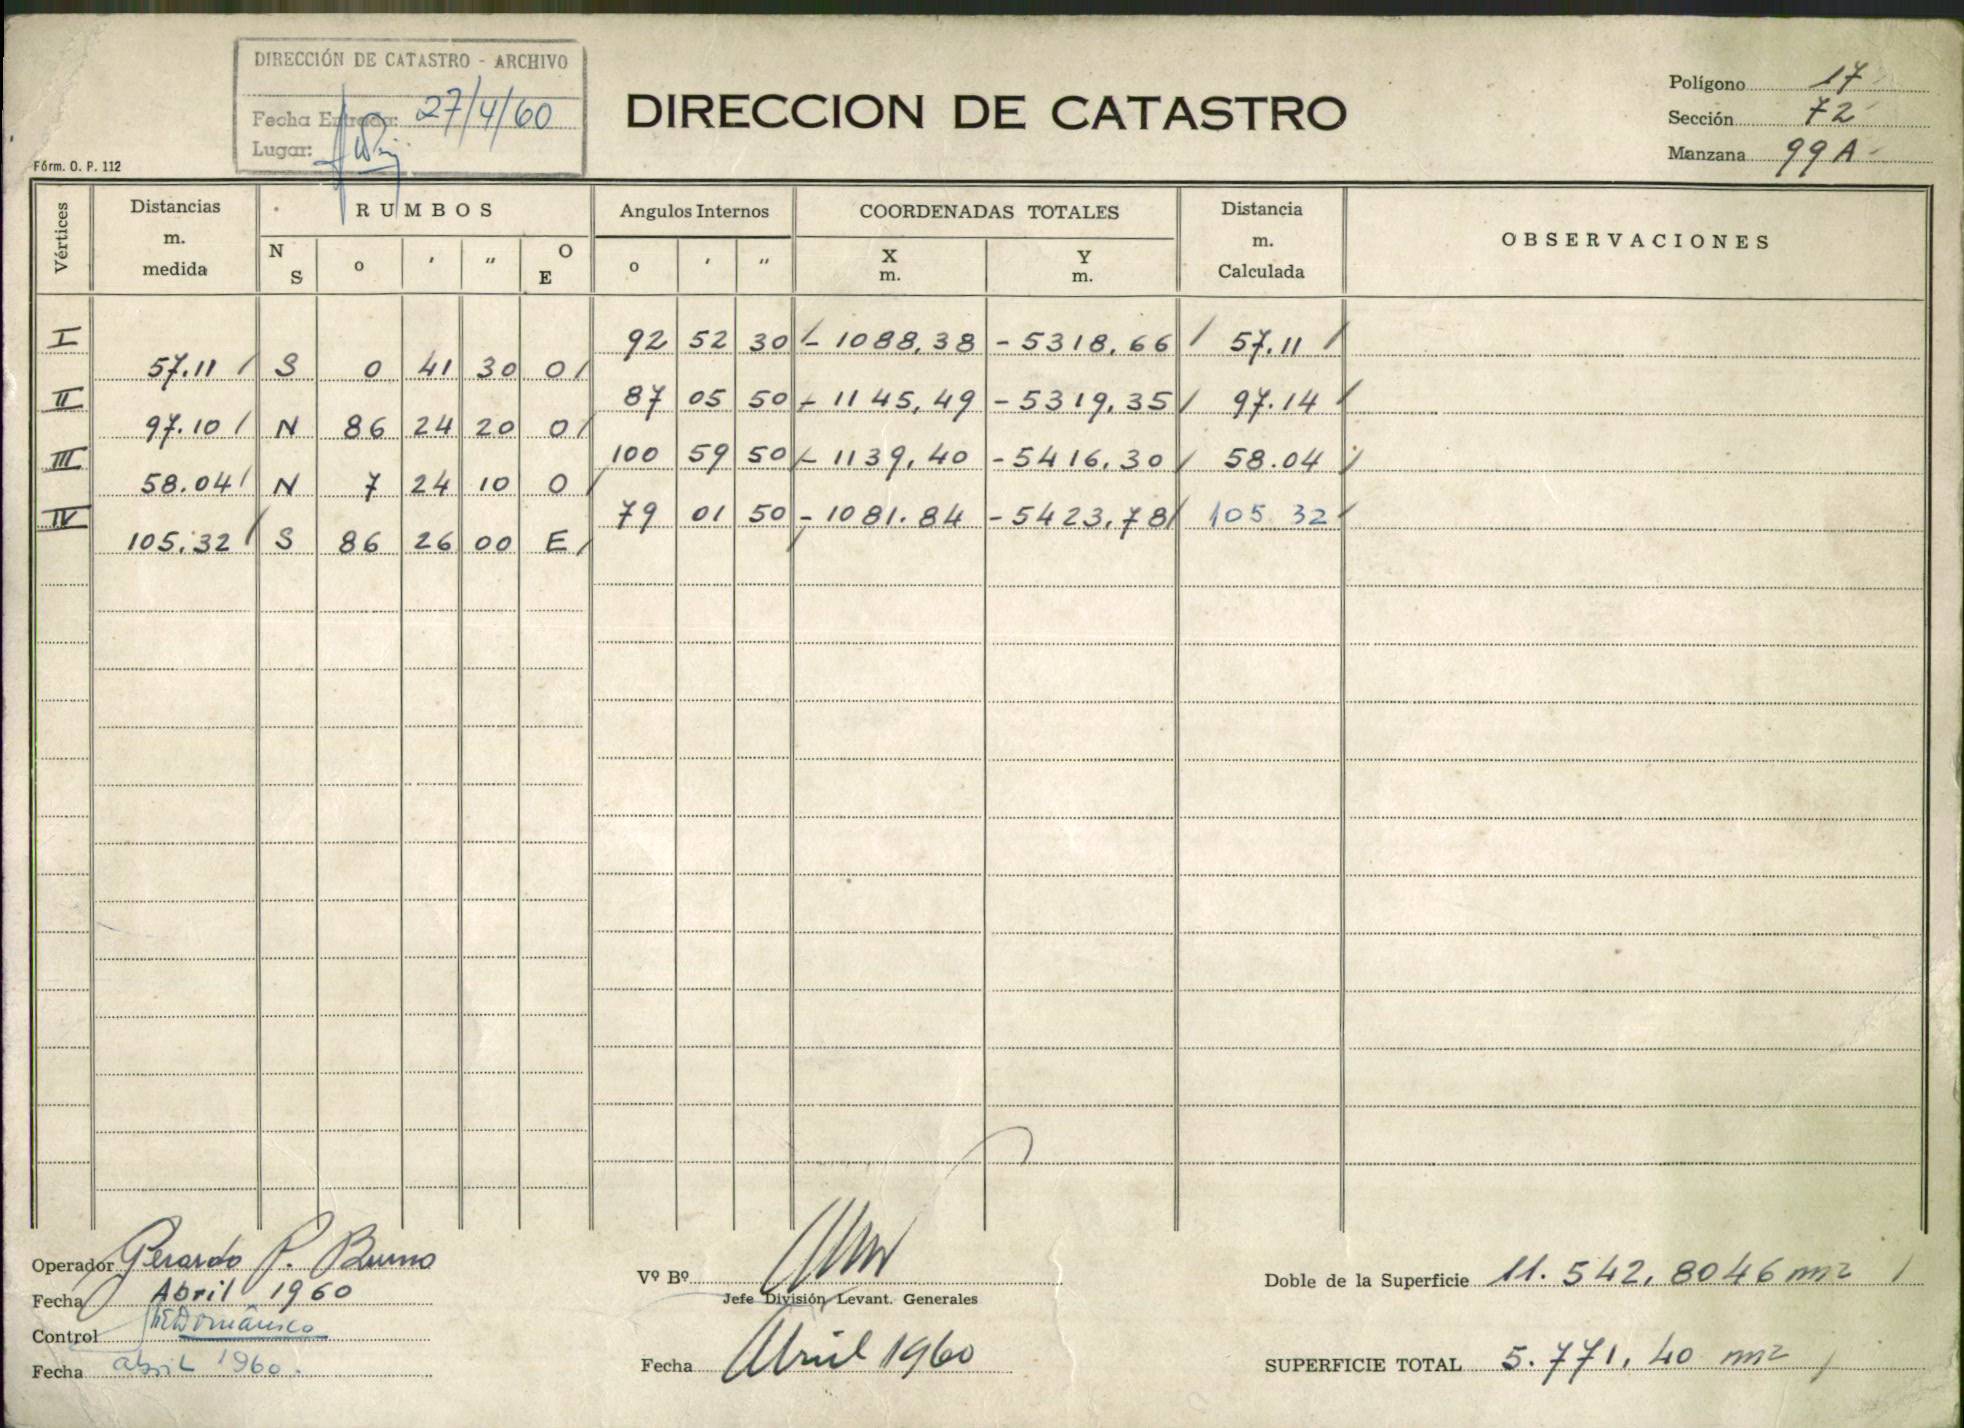 DIRECCIÓN DE CATASTRO - ARCHIVO
Fecha Entrada: 27/4/60
Lugar:
DIRECCION DE CATASTRO
Polígono 17
Sección 72
Manzana 99 A
Fórm. O. P. 112
Vértices
Distancias m. medida
RUMBOS
N S o ' " O E
Angulos Internos
o ' "
COORDENADAS TOTALES
X m. Y m.
Distancia m. Calculada
OBSERVACIONES
I 92 52 30 - 1088,38 - 5318,66 57.11
57.11 S 0 41 30 O
II 87 05 50 - 1145,49 - 5319,35 97.14
97.10 N 86 24 20 O
III 100 59 50 - 1139,40 - 5416,30 58.04
58.04 N 7 24 10 O
IV 79 01 50 - 1081.84 - 5423,78 105.32
105.32 S 86 26 00 E
Operador Gerardo P. Bruno
Fecha Abril 1960
Control
Fecha abril 1960.
Vº Bº
Jefe División Levant. Generales
Fecha Abril 1960
Doble de la Superficie 11.542,8046 m2
SUPERFICIE TOTAL 5.771,40 m2